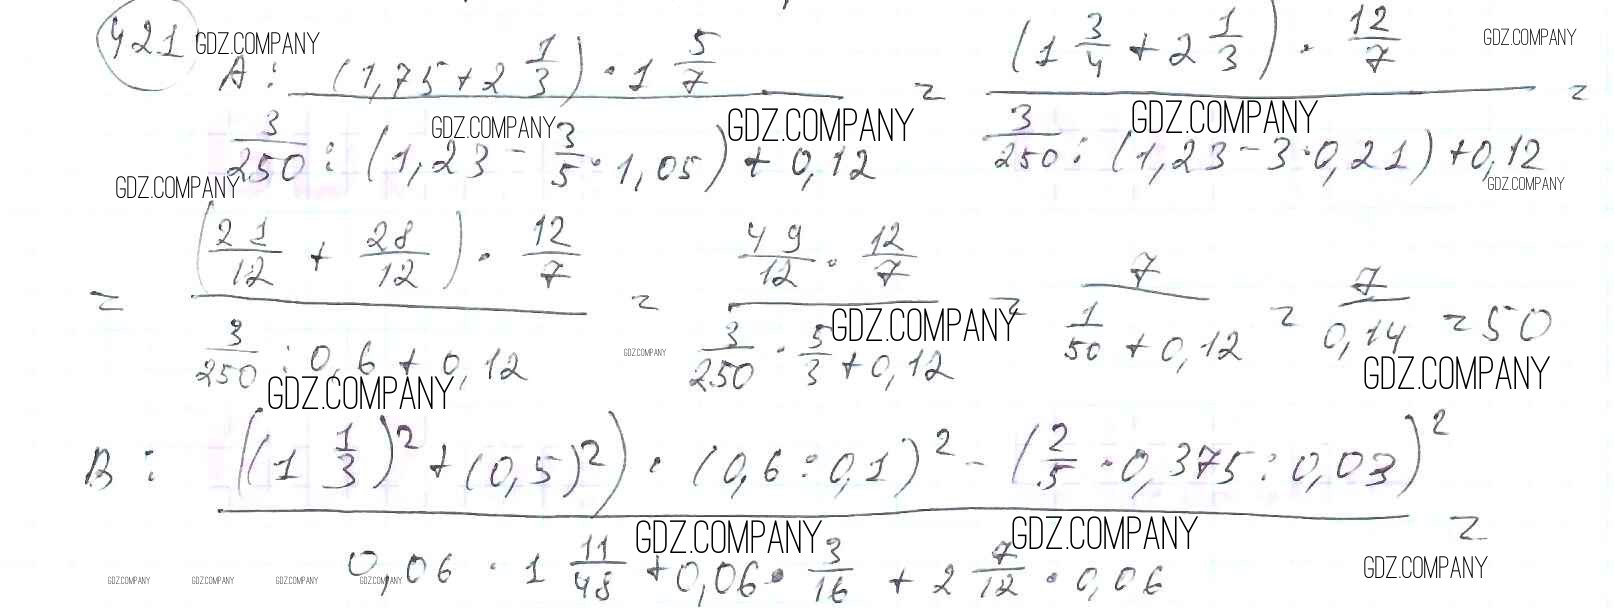 421 GDZ.COMPANY GDZ.COMPANY
A: \frac{(1,75 + 2\frac{1}{3}) \cdot 1\frac{5}{7}}{\frac{3}{250} : (1,23 - \frac{3}{5} \cdot 1,05) + 0,12} = \frac{(1\frac{3}{4} + 2\frac{1}{3}) \cdot \frac{12}{7}}{\frac{3}{250} : (1,23 - 3 \cdot 0,21) + 0,12} =
GDZ.COMPANY GDZ.COMPANY GDZ.COMPANY
GDZ.COMPANY GDZ.COMPANY
= \frac{(\frac{21}{12} + \frac{28}{12}) \cdot \frac{12}{7}}{\frac{3}{250} : 0,6 + 0,12} = \frac{\frac{49}{12} \cdot \frac{12}{7}}{\frac{3}{250} \cdot \frac{5}{3} + 0,12} = \frac{7}{\frac{1}{50} + 0,12} = \frac{7}{0,14} = 50
GDZ.COMPANY GDZ.COMPANY
GDZ.COMPANY GDZ.COMPANY
B: \frac{((1\frac{1}{3})^2 + (0,5)^2) \cdot (0,6 : 0,1)^2 - (\frac{2}{5} \cdot 0,375 : 0,03)^2}{0,06 \cdot 1\frac{11}{48} + 0,06 \cdot \frac{3}{16} + 2\frac{7}{12} \cdot 0,06} =
GDZ.COMPANY GDZ.COMPANY
GDZ.COMPANY GDZ.COMPANY GDZ.COMPANY GDZ.COMPANY GDZ.COMPANY